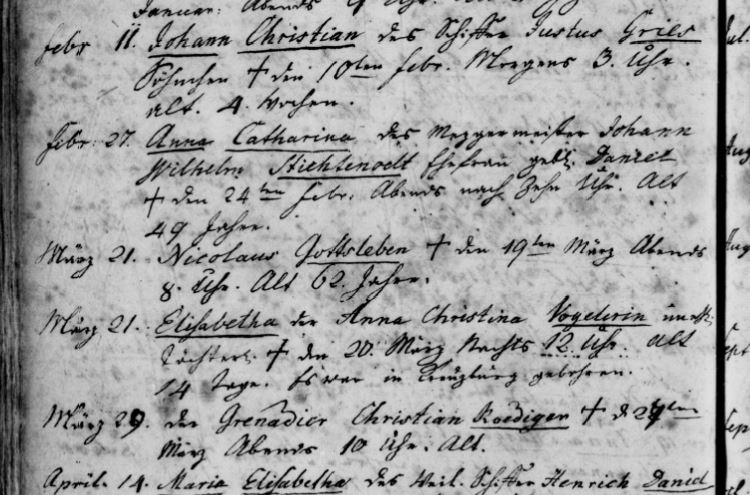 Januar. Abends 9 Uhr.
febr 11. Johann Christian des Schiffer Justus Gries
Söhnchen † den 10ten febr. Morgens 3. Uhr.
alt. 4. Wochen.
febr. 27. Anna Catharina des Mezgermeister Johann
Wilhelm Stichtenoth Ehefrau gebl. Daniel
† den 24ten febr. Abends nach Zehn Uhr. Alt
49 Jahre.
März 21. Nicolaus Gottsleben † den 19ten März Abends
8. Uhr. Alt 62. Jahre.
März 21. Elisabetha der Anna Christina Vogelerin unehl.
Töchterl. † den 20. März Nachts 12 Uhr. alt
14 Tage. Es war in Creuzburg gebohren.
März 29. der Grenadier Christian Roediger † d 27ten
März Abends 10 Uhr. Alt.
April. 14. Maria Elisabetha des Weil. Schiffer Henrich Daniel